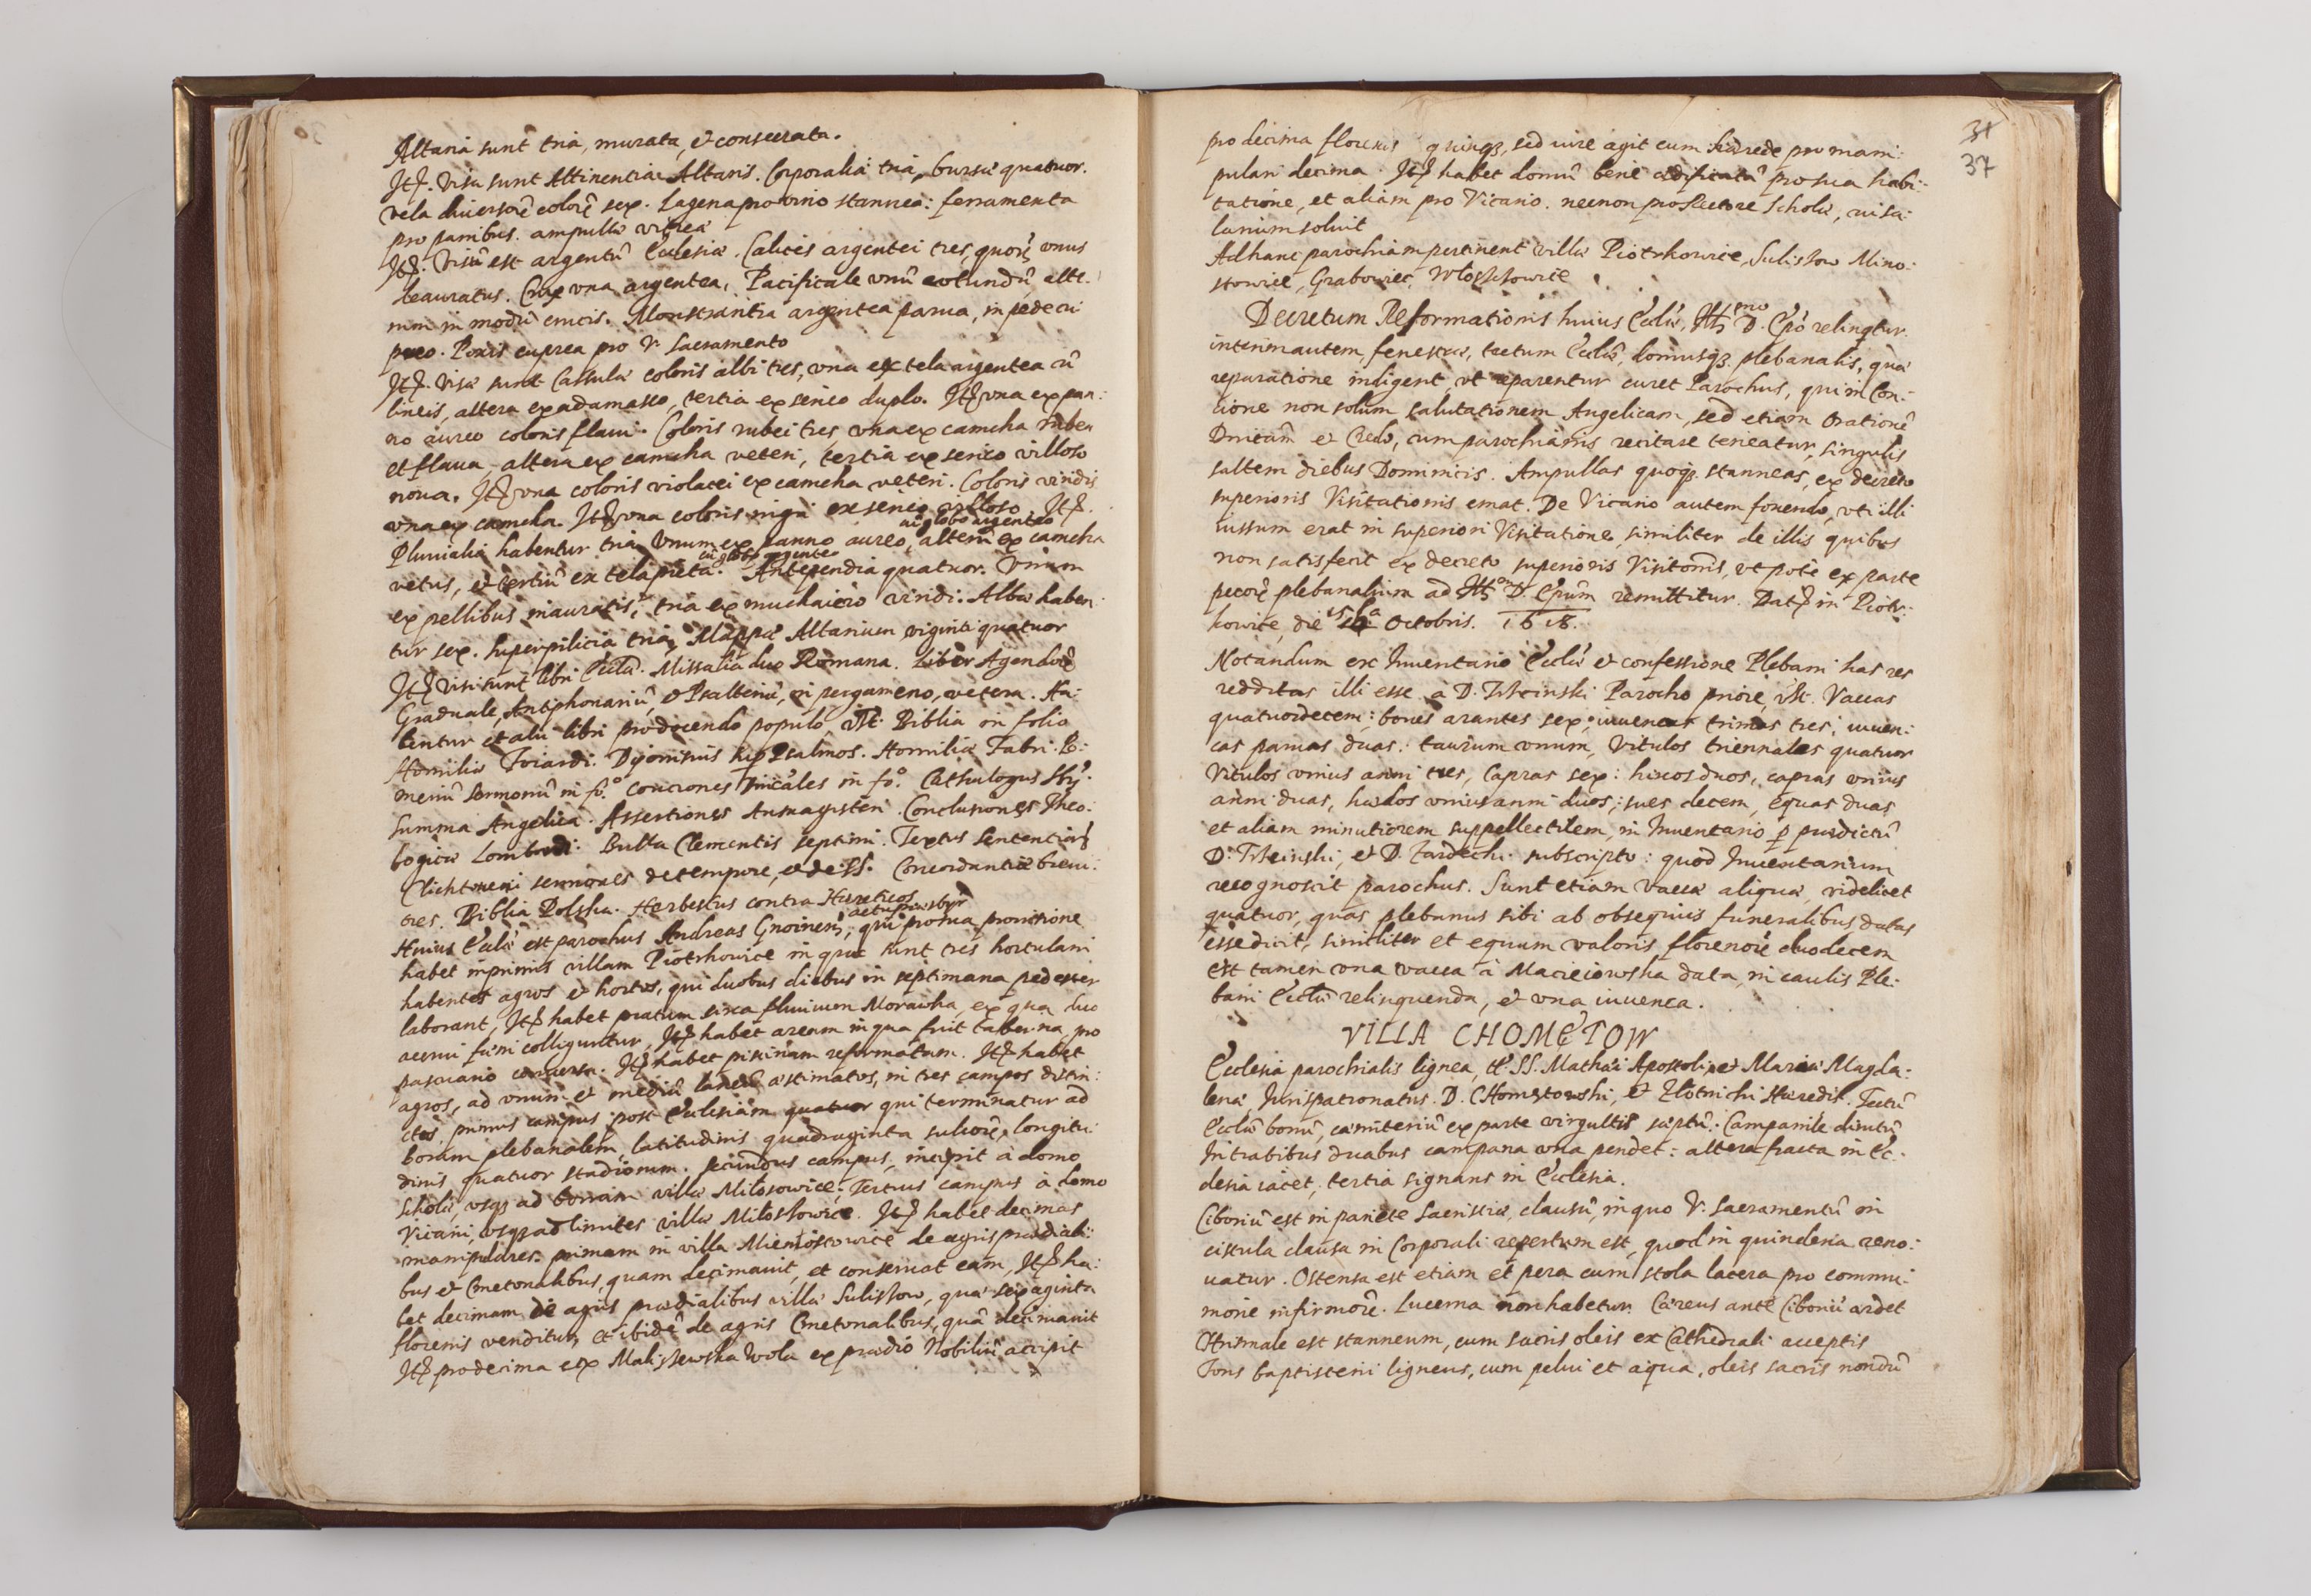 Altaria sunt tria, murata, et consecrata.
Itē. Visa sunt Attinentia Altaris. Corporalia tria, bursæ quatuor.
vela diuersorū colorū sex. Lagena pro vino stannea: ferramenta
pro panibus. ampulla vitrea
Itē. Visū est argentū Ecclesiæ. Calices argentei tres, quorū vnus
deauratus. Crux vna argentea, Pacificale vnū rotundū, alte-
rum in modū crucis. Monstrantia argentea parua, in pede cu
preo. Pixis cuprea pro V. Sacramento
Itē. Visæ sunt Casulæ coloris albi tres, vna ex tela argentea cū
lineis, altera ex adamasco, tertia ex serico duplo. Itē vna ex pan:
no aureo coloris flaui. Coloris rubei tres, vna ex camcha rubea
et flaua, altera ex camcha veteri, tertia ex serico villoso
noua. Itē vna coloris violacei ex camcha veteri. Coloris viridis
vna ex camcha. Itē vna coloris nigri ex serico villoso. Itē.
cū globo argenteo
Pluuialia habentur tria, Vnum ex panno aureo, alterū ex camcha
cū globo argenteo
vetus, et tertiū ex tela picta. Antependia quatuor. Vnum
ex pellibus inauratis, tria ex muchaiero viridi. Albæ haben
tur sex. superpilicia tria, Mappæ Altarium viginti quatuor
Itē visi sunt libri Ecclæ. Missalia duo Romana. Liber Agendorū
Graduale, Antiphonariū, et Psalteriū, in pergameno, vetera. Ha:
bentur et alii libri pro docendo populo, vt. Biblia in folio
Homiliæ Roiardi. Dyonisius sup Psalmos. Homiliæ Fabri.
sermonū in fo. Conciones in fo. Cathalogus
Summa Angelica. Assertiones Conclusiones Theo:
logicæ Lombardi. Bulla Clementis septimi. Textus sententiarū
Clichtouei sermones de tempore, et de SS. Concordantiæ breui:
ores. Biblia Polska. Herbestus contra Hæreticos
Huius Ecclæ est parochus Andreas Gnoinen, qui pro sua prouisione
habet inprimis villam Piotrkowice in qua sunt tres hortulani
habentes agros et hortos, qui duobus diebus in septimana pedester
laborant, Itē habet pratum circa fluuium Morawka, ex qua duo
acerui fœni colliguntur, Itē habet aream in qua fuit taberna, pro
pascuario conuersa. Itē habet piscinam reformatam. Itē habet
agros, ad vnum et mediū laneū æstimatos, in tres campos distin:
ctos, primus campus post Ecclesiam quatuor qui terminatur ad
boram plebanalem, latitudinis quadraginta sulcorū, longitu
dinis quatuor stadiorum. secundus campus, incipit à domo
Scholæ, vsq3 ad borram villæ Milosowice: Tertius campus à domo
Vicarii, vsq3 ad limites villæ Miloskowice. Itē habet decimas
manipulares. primam in villa de agris prædiali:
bus et Cmetonalibus, quam decimauit, et conseruat eam, Itē ha:
bet decimam de agris prædialibus villæ Sulisłow, quæ sexaginta
florenis venditur, et ibidē de agris Cmetonalibus, quā decimauit
Itē pro decima ex Maliszewska Wola ex prædio Nobiliū accipit
31
37
pro decima florenis quinq3, sed iure agit cum hærede pro mani:
pulari decima. Itē habet domū bene ædificatā pro sua habi:
tatione, et aliam pro Vicario. necnon pro Rectore Scholæ, cui sa:
larium soluit
Ad hanc parochiam pertinent villæ Piotrkowice, Sulisłow Mino:
stowice, Grabowiec, Włoszczowice
Decretum Reformationis huius Ecclæ, Illmo D. Epo relinqtur.
interim autem, fenestræ, tectum Ecclæ, domusq3 plebanalis, quæ
reparatione indigent, vt reparentur curet Parochus, qui in Con:
cione non solùm salutationem Angelicam, sed etiam Orationē
Dnicam et Credo, cum parochianis recitare teneatur, singulis
saltem diebus Dominicis. Ampullas quoq3 stanneas, ex decreto
superioris Visitationis emat. De Vicario autem fouendo, vti illi
iussum erat in superiori Visitatione, similiter de illis quibus
non satisfecit ex decreto superioris Visitoris, vt pote ex parte
pecorū plebanalium ad Illm D. Epum remittitur. Datū in Piotr:
kowice, die 15 Octobris. 1618.
Notandum ex Inuentario Ecclæ et confessione Plebani has res
redditas illi esse à D. Parocho priore, vt. Vaccas
quatuordecem; boues arantes sex, iuuencas trimas tres; iuuen:
cas paruas duas: taurum vnum, Vitulos triennales quatuor
Vitulos vnius anni tres, Capras sex: hircos duos, capras vnius
anni duas, hædos vnius anni duos; sues decem, equas duas
et aliam minutiorem suppellectilem, in Inuentario p prædictū
D. et D. Zardecki subscripto: quod Inuentarium
recognoscit parochus. Sunt etiam Vaccæ aliquæ, videlicet
quatuor, quas plebanus sibi ab obsequiis funeralibus datas
esse dicit, similiter et equum valoris florenorū duodecem
est tamen vna vacca à Macieiowska data, in caulis Ple:
bani Ecclæ relinquenda, et vna iuuenca.
VILLA CHOMĘTOW
Ecclesia parochialis lignea, tt. SS. Mathæi Apostoli, et Mariæ Magda:
lenæ, Iurispatronatus D. CHomętowski, et Złotnicki Hæredis. Tectū
Ecclæ bonū, cæmiteriū ex parte virgultis sæptū. Campanile dirutū
In trabibus duabus campana vna pendet: altera fracta in Ec:
clesia iacet, tertia signans in Ecclesia.
Ciboriū est in pariete Sacristiæ, clausū, in quo V. Sacramentū in
cistula clausa in Corporali repertum est, quod in quindena reno:
uatur. Ostensa est etiam et pera cum stola lacera pro commu:
nione infirmorū. Lucerna non habetur. Cæreus ante Ciboriū ardet
Chrismale est stanneum, cum sacris oleis ex Cathedrali acceptis
Fons baptisterii ligneus, cum pelui et aqua, oleis sacris nondū